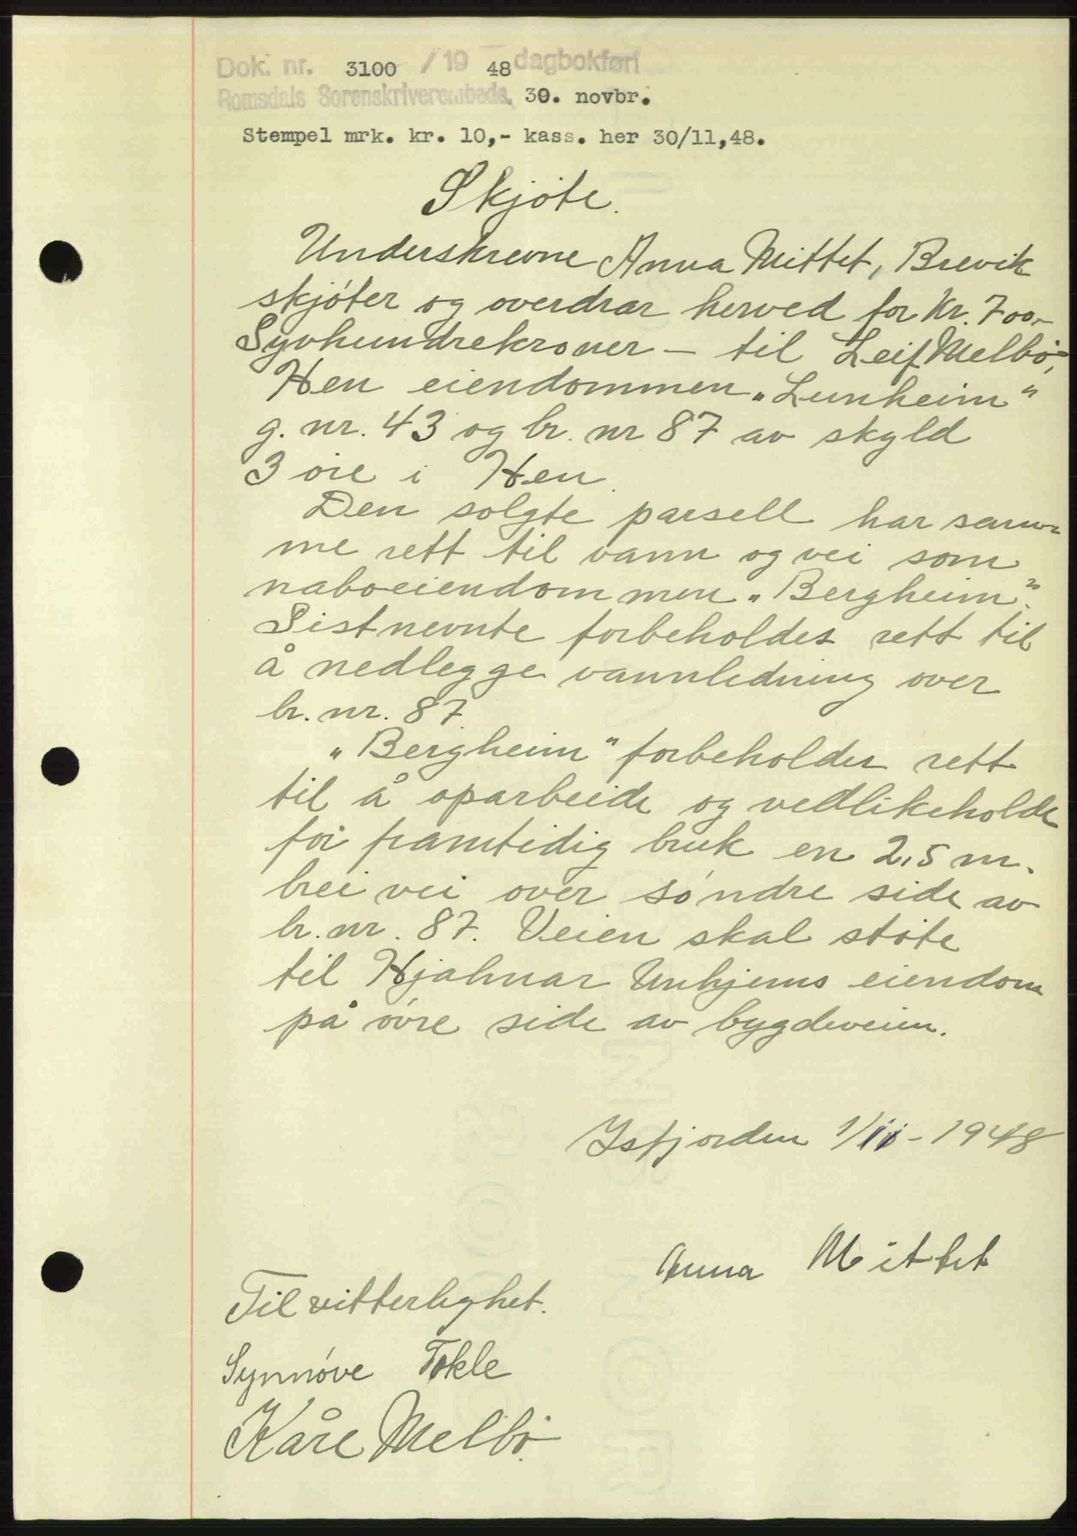 Dok. nr. 3100 / 19 48 dagbokført
Romsdals Sorenskriverembede, 30. novbr.
Stempel mrk. kr. 10,- kass. her 30/11,48.
Skjøte.
Underskrevne Anna Mittet, Brevik
skjøter og overdrar herved for Kr. 700,-
Syvhundrekroner - til Leif Melbø,
Hen eiendommen „Lunheim"
g. nr. 43 og br. nr 87 av skyld
3 øre i Hen.
Den solgte parsell har sam-
me rett til vann og vei som
naboeiendommen „Bergheim".
Sistnevnte forbeholdes rett til
å nedlegge vannledning over
br. nr. 87.
„Bergheim" forbeholdes rett
til å oparbeide og vedlikeholde
for framtidig bruk en 2,5 m.
brei vei over søndre side av
br. nr. 87. Veien skal støte
til Hjalmar Unhjems eiendom
på øvre side av bygdeveien.
Isfjorden 1/11 - 1948
Anna Mittet
Til vitterlighet.
Synnøve Tokle
Kåre Melbø.